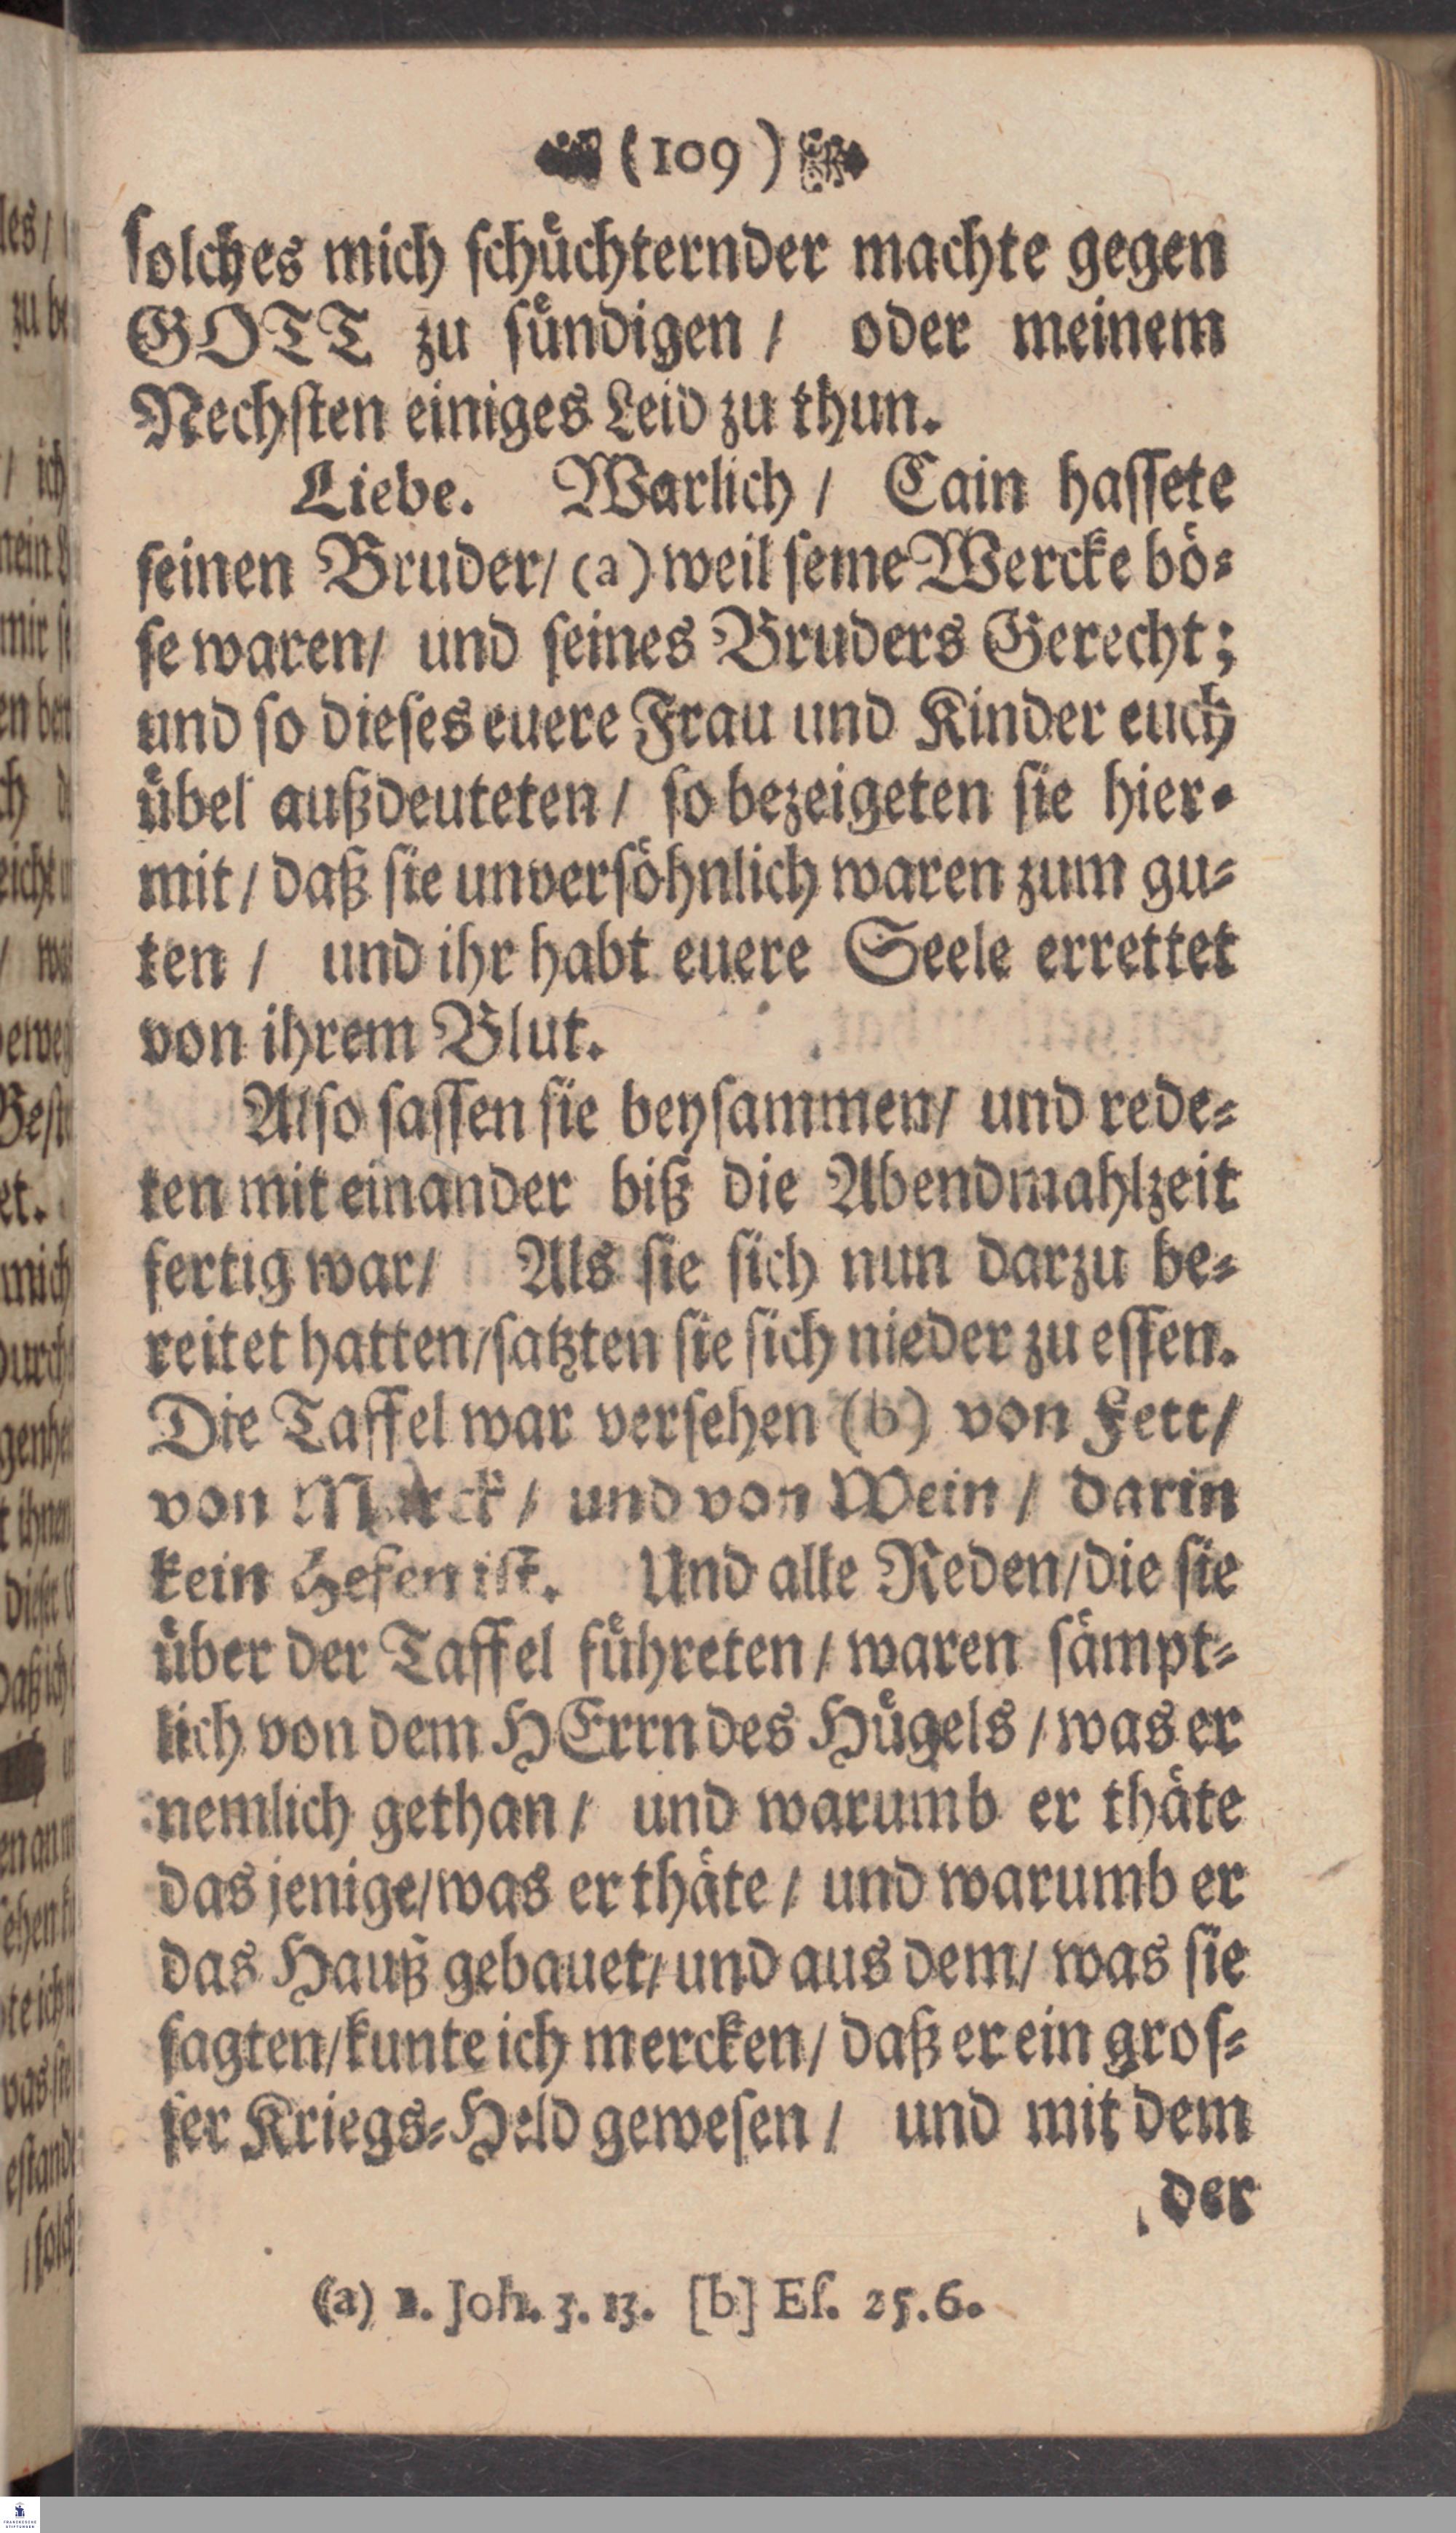 (109)
solches mich schüchternder machte gegen
GOTT zu sündigen / oder meinem
Nechsten einiges Leid zu thun.
Liebe. Warlich / Cain hassete
seinen Bruder / (a) weil seine Wercke bö-
se waren / und seines Bruders Gerecht;
und so dieses euere Frau und Kinder euch
übel außdeuteten / so bezeigeten sie hier-
mit / daß sie unversöhnlich waren zum gu-
ten / und ihr habt euere Seele errettet
von ihrem Blut.
Also sassen sie beysammen / und rede-
ten mit einander biß die Abendmahlzeit
fertig war / Als sie sich nun darzu be-
reitet hatten / satzten sie sich nieder zu essen.
Die Taffel war versehen (b) von Fett /
von Marck / und von Wein / darin
kein Hefen ist. Und alle Reden / die sie
über der Taffel führeten / waren sämpt-
lich von dem HErrn des Hügels / was er
nemlich gethan / und warumb er thäte
das jenige / was er thäte / und warumb er
das Hauß gebauet / und aus dem / was sie
sagten / kunte ich mercken / daß er ein gros-
ser Kriegs-Held gewesen / und mit dem
der
(a) 1. Joh. 3. 13. [b] Es. 25. 6.